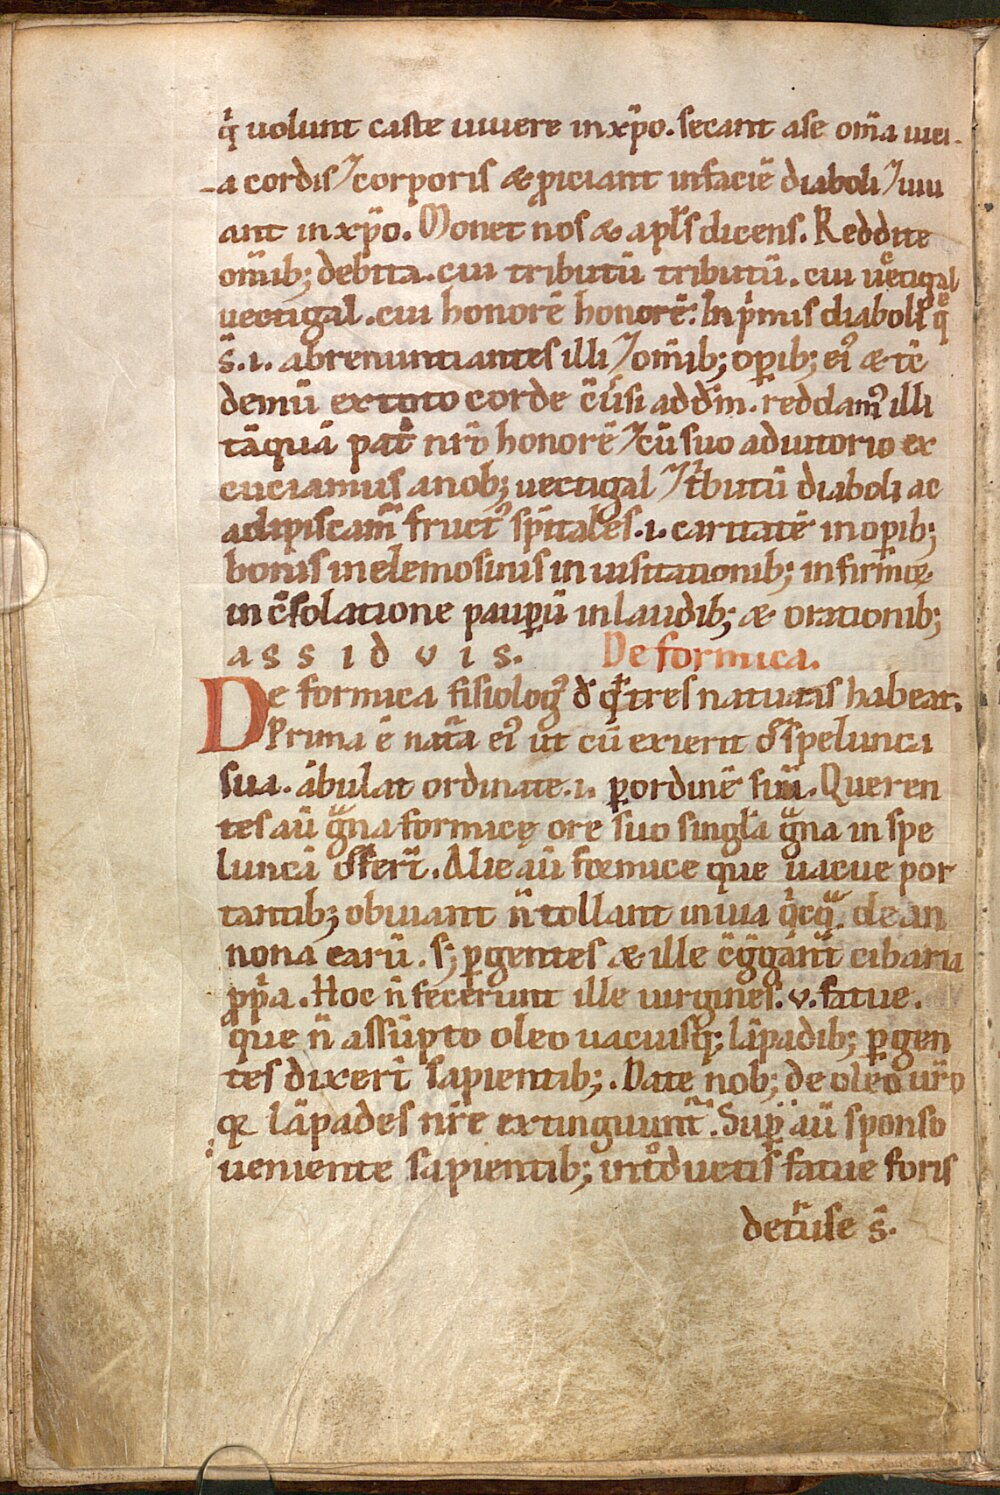 qͥ uolunt caste uiuere in xp̄o. secant a se om̄ia uici-
a cordis ⁊ corporis & ꝓiciant in faciē diaboli ⁊ uiu
ant in xp̄o. Monet nos & apl̄s dicens. Reddite
om̄ib; debita. cui tributū tributū. cui uectigal
uectigal. cui honorē honorē. In pͥmis diaboli q̄
s̄. i. abrenuntiantes illi ⁊ om̄ib; opib; ei᷒ & tc̄
demū ex toto corde c̄uͥsi ad dm̄. reddam᷒ illi
tāquā patͥ nr̄o honorē ⁊ cū suo adiutorio ex
cuciamus a nob; uectigal ⁊ tͥbutū diaboli ac
adipiscam᷒ fruct᷒ sp̄itales. i. caritatē in opib;
bonis in elemosinis in uisitationib; infirmoꝝ
in c̄solatione pauꝑū in laudib; & orationib;
a s s i d v i s. De formica.
De formica fisiolog᷒ dͥ qͩ tres naturas habeat.
Prima ē nat̄a ei᷒ ut cū exierit de spelunca
sua. ābulat ordinate. i. ꝑ ordinē suū. Queren
tes aū gͣna formicę ore suo singl̄a gͣna in spe
luncā offerͭ. Alie aū formice que uacue por
tantib; obuiant n̄ tollant in uia qͥcqͣ de an
nona earū. s; ꝑgentes & ille c̄gͤgant̄ cibaria
ꝓpͥa. Hoc n̄ fecerunt ille uirgines. v. fatue.
que n̄ assūpto oleo uacuisq; lāpadib; ꝑgen
tes dixerͭ sapientib;. Date nob; de oleo ur̄o
qꝛ lāpades nr̄e extinguunt᷒. Suꝑ aū sponso
ueniente sapientib; intͦductis fatue foris
detͬuse s̄.